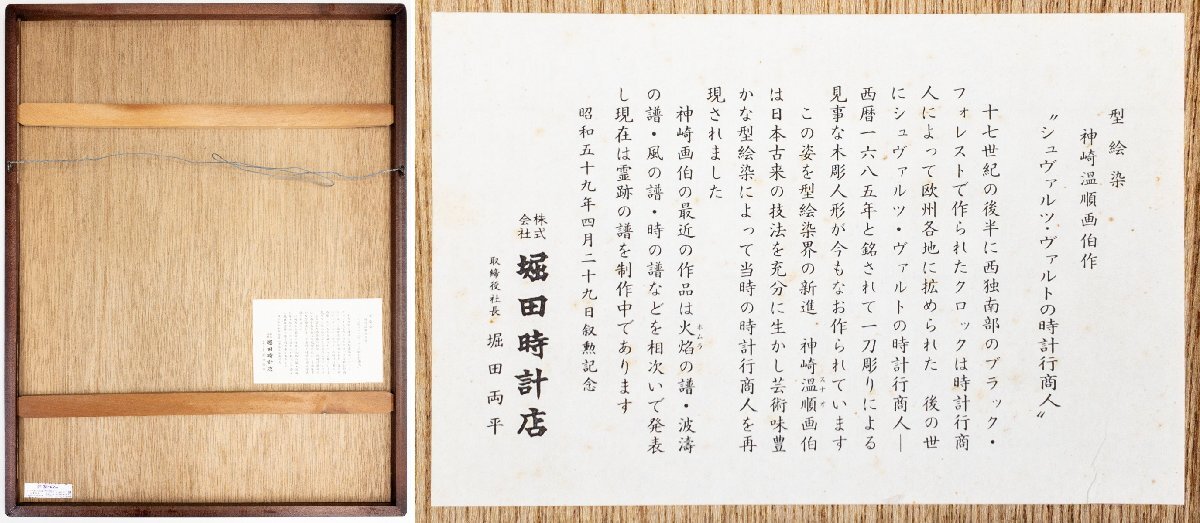 型絵染
神崎温順画伯作
〝シュヴァルツ・ヴァルトの時計行商人〟
十七世紀の後半に西独南部のブラック・
フォレストで作られたクロックは時計行商
人によって欧州各地に拡められた 後の世
にシュヴァルツ・ヴァルトの時計行商人―
西暦一六八五年と銘されて一刀彫りによる
見事な木彫人形が今もなお作られています
この姿を型絵染界の新進 神崎温順画伯
は日本古来の技法を充分に生かし芸術味豊
かな型絵染によって当時の時計行商人を再
現されました
神崎画伯の最近の作品は火焰の譜・波濤
の譜・風の譜・時の譜などを相次いで発表
し現在は霊跡の譜を制作中であります
昭和五十九年四月二十九日叙勲記念
株式会社 堀田時計店
取締役社長 堀田両平